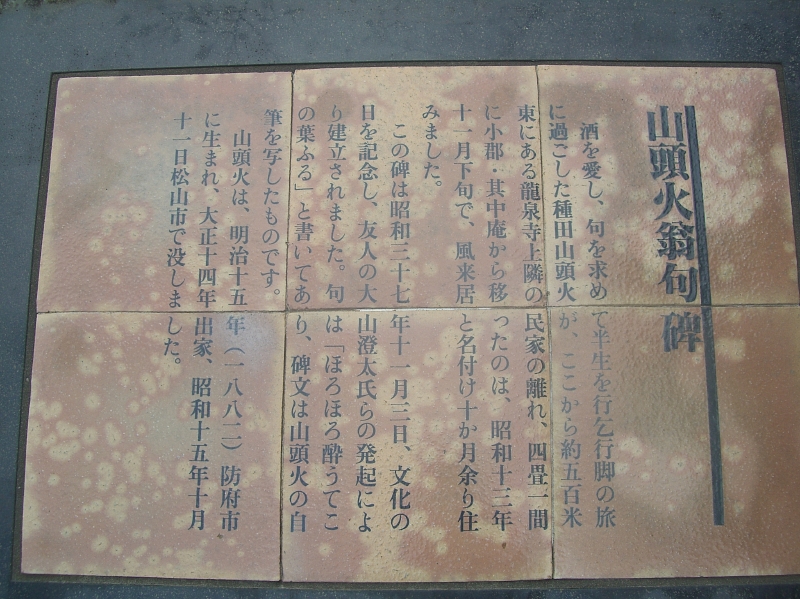 山頭火翁句碑
酒を愛し、句を求めて半生を行乞行脚の旅
に過ごした種田山頭火が、ここから約五百米
東にある龍泉寺上隣の民家の離れ、四畳一間
に小郡・其中庵から移ったのは、昭和十三年
十一月下旬で、風来居と名付け十か月余り住
みました。
この碑は昭和三十七年十一月三日、文化の
日を記念し、友人の大山澄太氏らの発起によ
り建立されました。句は「ほろほろ酔うてこ
の葉ふる」と書いてあり、碑文は山頭火の自
筆を写したものです。
山頭火は、明治十五年（一八八二）防府市
に生まれ、大正十四年出家、昭和十五年十月
十一日松山市で没しました。